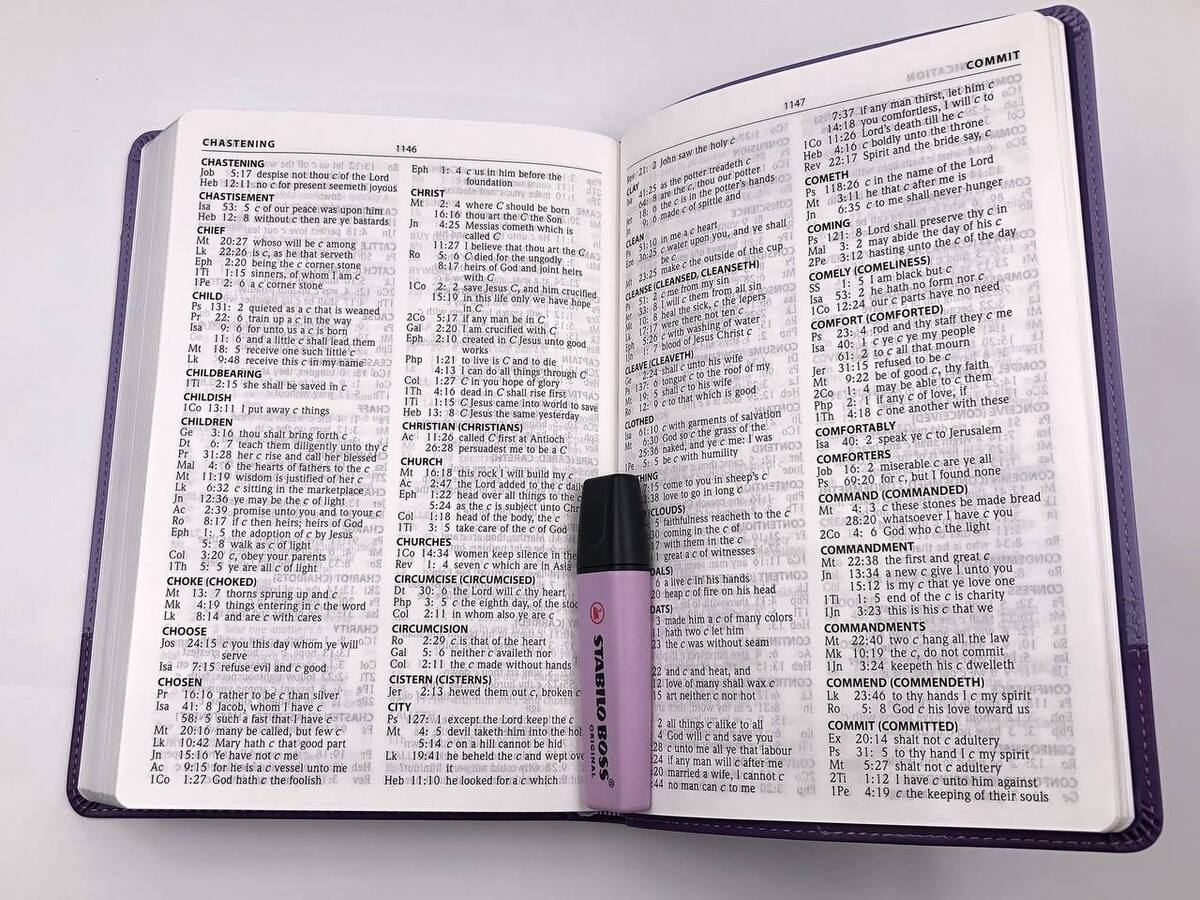 CHASTENING
1146
CHASTENING
Job 5:17 despise not thou c of the Lord
Heb 12:11 no c for present seemeth joyous
CHASTISEMENT
Isa 53: 5 c of our peace was upon him
Heb 12: 8 without c then are ye bastards
CHIEF
Mt 20:27 whoso will be c among
Lk 22:26 is c, as he that serveth
Eph 2:20 being the c corner stone
1Ti 1:15 sinners, of whom I am c
1Pe 2: 6 a c corner stone
CHILD
Ps 131: 2 quieted as a c that is weaned
Pr 22: 6 train up a c in the way
Isa 9: 6 for unto us a c is born
11: 6 and a little c shall lead them
Mt 18: 5 receive one such little c
Lk 9:48 receive this c in my name
CHILDBEARING
1Ti 2:15 she shall be saved in c
CHILDISH
1Co 13:11 I put away c things
CHILDREN
Ge 3:16 thou shalt bring forth c
Dt 6: 7 teach them diligently unto thy c
Pr 31:28 her c rise and call her blessed
Mal 4: 6 the hearts of fathers to the c
Mt 11:19 wisdom is justified of her c
Lk 6:32 c sitting in the marketplace
Jn 12:36 ye may be the c of light
Ac 2:39 promise unto you and to your c
Ro 8:17 if c then heirs; heirs of God
Eph 1: 5 the adoption of c by Jesus
5: 8 walk as c of light
Col 3:20 c, obey your parents
1Th 5: 5 ye are all c of light
CHOKE (CHOKED)
Mt 13: 7 thorns sprung up and c
Mk 4:19 things entering in c the word
Lk 8:14 and are c with cares
CHOOSE
Jos 24:15 c you this day whom ye will
serve
Isa 7:15 refuse evil and c good
CHOSEN
Pr 16:16 rather to be c than silver
Isa 41: 8 Jacob, whom I have c
58: 5 such a fast that I have c
Mt 20:16 many be called, but few c
Lk 10:42 Mary hath c that good part
Jn 15:16 Ye have not c me
Ac 9:15 for he is a c vessel unto me
1Co 1:27 God hath c the foolish
Eph 1: 4 c us in him before the
foundation
CHRIST
Mt 2: 4 where C should be born
16:16 thou art the C the Son
Jn 4:25 Messias cometh which is
called C
11:27 I believe that thou art the C
Ro 5: 6 C died for the ungodly
8:17 heirs of God and joint heirs
with C
1Co 2: 2 save Jesus C, and him crucified
15:19 in this life only we have hope
in C
2Co 5:17 if any man be in C
Gal 2:20 I am crucified with C
Eph 2:10 created in C Jesus unto good
works
Php 1:21 to live is C and to die
4:13 I can do all things through C
Col 1:27 C in you hope of glory
1Th 4:16 dead in C shall rise first
1Ti 1:15 C Jesus came into world to save
Heb 13: 8 C Jesus the same yesterday
CHRISTIAN (CHRISTIANS)
Ac 11:26 called C first at Antioch
26:28 persuadest me to be a C
CHURCH
Mt 16:18 this rock I will build my c
Ac 2:47 the Lord added to the c daily
Eph 1:22 head over all things to the c
5:24 as the c is subject unto Chr
Col 1:18 head of the body, the c
1Ti 3: 5 take care of the c of God
CHURCHES
1Co 14:34 women keep silence in the
Rev 1: 4 seven c which are in Asia
CIRCUMCISE (CIRCUMCISED)
Dt 30: 6 the Lord will c thy heart
Php 3: 5 c the eighth day, of the stoc
Col 2:11 in whom also ye are c
CIRCUMCISION
Ro 2:29 c is that of the heart
Gal 5: 6 neither c availeth nor
Col 2:11 the c made without hands
CISTERN (CISTERNS)
Jer 2:13 hewed them out c, broken c
CITY
Ps 127: 1 except the Lord keep the c
Mt 4: 5 devil taketh him into the hol
5:14 c on a hill cannot be hid
Lk 19:41 he beheld the c and wept ove
it
Heb 11:10 he looked for a c which
STABILO BOSS
ORIGINAL
1147
COMMIT
Rev 21: 2 John saw the holy c
CLAY
Isa 41:25 as the potter treadeth c
64: 8 are the c, thou our potter
Jer 18: 6 the c is in the potter's hands
9: 6 made c of spittle and
CLEAN
Ps 51:10 in me a c heart,
Eze 36:25 c water upon you, and ye shall
be c
23:25 make c the outside of the cup
CLEANSE (CLEANSED, CLEANSETH)
Ps 51: 2 c me from my sin
Jer 33: 8 I will c them from all sin
10: 8 heal the sick, c the lepers
17:17 were there not ten c
5:26 c with washing of water
1: 7 blood of Jesus Christ c
CLEAVE (CLEAVETH)
Ge 2:24 shall c unto his wife
Ps 137: 6 tongue c to the roof of my
Mt 19: 5 shall c to his wife
Ro 12: 9 c to that which is good
CLOTHED
Isa 61:10 c with garments of salvation
Mt 6:30 God so c the grass of the
25:36 naked, and ye c me: I was
1Pe 5: 5 be c with humility
THING
7:15 come to you in sheep's c
2:38 love to go in long c
(CLOUDS)
5 faithfulness reacheth to the c
30 coming in the c of
17 with them in the c
1 great a c of witnesses
OALS)
6 a live c in his hands
20 heap c of fire on his head
OATS)
3 made him a c of many colors
11 hath two c let him
23 the c was without seam
22 and c and heat, and
12 love of many shall wax c
15 art neither c nor hot
2 all things c alike to all
4 God will c and save you
28 c unto me all ye that labour
24 if any man will c after me
20 married a wife, I cannot c
:44 no man can c to me
7:37 if any man thirst, let him c
14:18 you comfortless, I will c to
1Co 11:26 Lord's death till he c
Heb 4:16 c boldly unto the throne
Rev 22:17 Spirit and the bride say, c
COMETH
Ps 118:26 c in the name of the Lord
Mt 3:11 he that c after me is
Jn 6:35 c to me shall never hunger
COMING
Ps 121: 8 Lord shall preserve thy c in
Mal 3: 2 may abide the day of his c
2Pe 3:12 hasting unto the c of the day
COMELY (COMELINESS)
SS 1: 5 I am black but c
Isa 53: 2 he hath no form nor c
1Co 12:24 our c parts have no need
COMFORT (COMFORTED)
Ps 23: 4 rod and thy staff they c me
Isa 40: 1 c ye c ye my people
61: 2 to c all that mourn
Jer 31:15 refused to be c
Mt 9:22 be of good c, thy faith
2Co 1: 4 may be able to c them
Php 2: 1 if any c of love, if
1Th 4:18 c one another with these
COMFORTABLY
Isa 40: 2 speak ye c to Jerusalem
COMFORTERS
Job 16: 2 miserable c are ye all
Ps 69:20 for c, but I found none
COMMAND (COMMANDED)
Mt 4: 3 c these stones be made bread
28:20 whatsoever I have c you
2Co 4: 6 God who c the light
COMMANDMENT
Mt 22:38 the first and great c
Jn 13:34 a new c give I unto you
15:12 is my c that ye love one
1Ti 1: 5 end of the c is charity
1Jn 3:23 this is his c that we
COMMANDMENTS
Mt 22:40 two c hang all the law
Mk 10:19 the c, do not commit
1Jn 3:24 keepeth his c dwelleth
COMMEND (COMMENDETH)
Lk 23:46 to thy hands I c my spirit
Ro 5: 8 God c his love toward us
COMMIT (COMMITTED)
Ex 20:14 shalt not c adultery
Ps 31: 5 to thy hand I c my spirit
Mt 5:27 shalt not c adultery
2Ti 1:12 I have c unto him against
1Pe 4:19 c the keeping of their souls